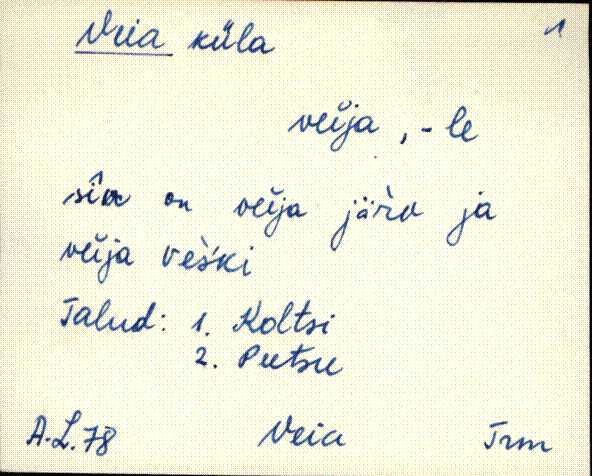 Veia küla 1
veĭja, -le
siin on veĭja järv ja
veĭja veški
Talud: 1. Koltsi
2. Putsu
A.L.78 Veia Trm